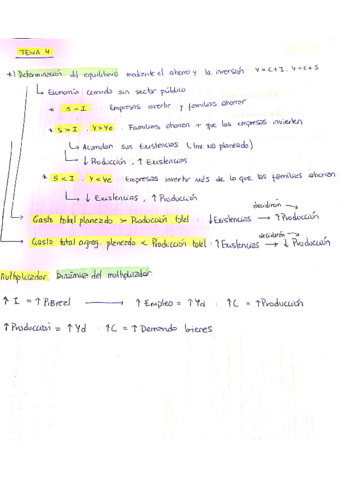 TEMA 4
*) Determinación del equilibrio mediante el ahorro y la inversión Y=C+I . Y=C+S
Economía cerrada sin sector público
* S = I . Empresas invertir y familias ahorrar
* S > I . Y > Ye . Familias ahorran + que las empresas invierten
Acumulan sus existencias (Inv no planeada)
↓ Producción, ↑ Existencias
* S < I . Y < Ye . Empresas invertir más de lo que las familias ahorran
↓ Existencias, ↑ Producción
Gasto total planeado > Producción total : ↓ Existencias decidirán → ↑ Producción
Gasto total agreg. planeado < Producción total : ↑ Existencias decidirán → ↓ Producción
Multiplicador. Dinámica del multiplicador
↑ I = ↑ PIBreal → ↑ Empleo = ↑ Yd : ↑ C = ↑ Producción
↑ Producción = ↑ Yd : ↑ C = ↑ Demanda bienes